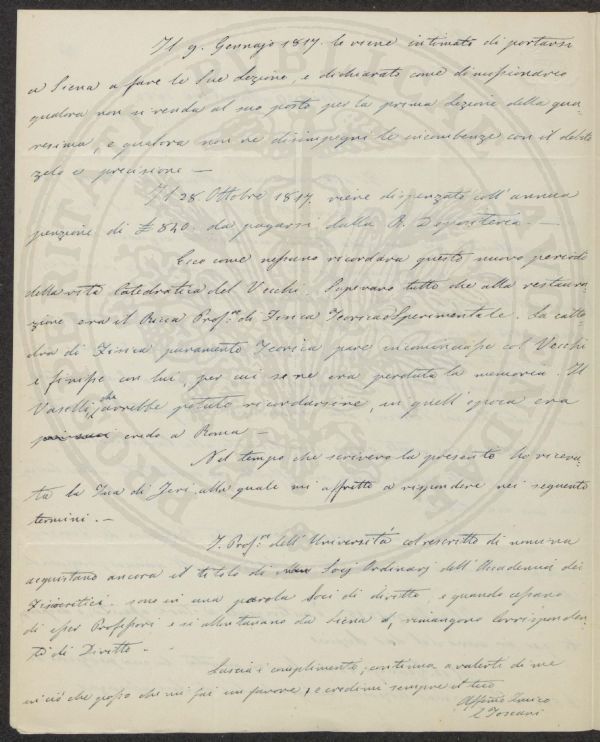 Il 9. Gennajo 1817. le viene intimato di portarsi
a Siena a fare le Sue Lezione, e dichiarato come dimissionario
qualora non si renda al suo posto per la prima Lezione della qua-
resima, e qualora non ne disimpegni le incombenze con il debito
zelo e precisione —
Il 28. Ottobre 1817. viene dispensato coll'annua
penzione di £ 840. da pagarsi dalla R. Depositeria. —
Ecco come nessuno ricordava questo nuovo periodo
della vita Catedratica del Vecchi. Sapevano tutti che alla restaura-
zione era il Bucca Prof.re di Fisica Teorica e Sperimentale. La catte-
dra di Fisica puramente Teorica pare incominciasse col Vecchi
e finisse con lui, per cui se ne era perduta la memoria. Il
Vaselli, che avrebbe potuto ricordarsene, in quell'epoca era
credo a Roma —
Nel tempo che scrivevo la presente ho ricevu-
ta la Tua di Jeri alla quale mi affretto a rispondere nei seguenti
termini. —
I. Prof.ri dell'Università col rescritto di nomina
acquistano ancora il titolo di Socj Ordinarj dell'Accademia dei
Fisiocritici. sono in una parola Soci di diritto, e quando cessano
di esser Professori e si allontanano da Siena, rimangono Corrisponden-
ti di Diritto. —
Lascia i complimenti, continua a valerti di me
in ciò che posso che mi fai un favore, e credimi sempre il tuo
Affmo Amico
Toscani